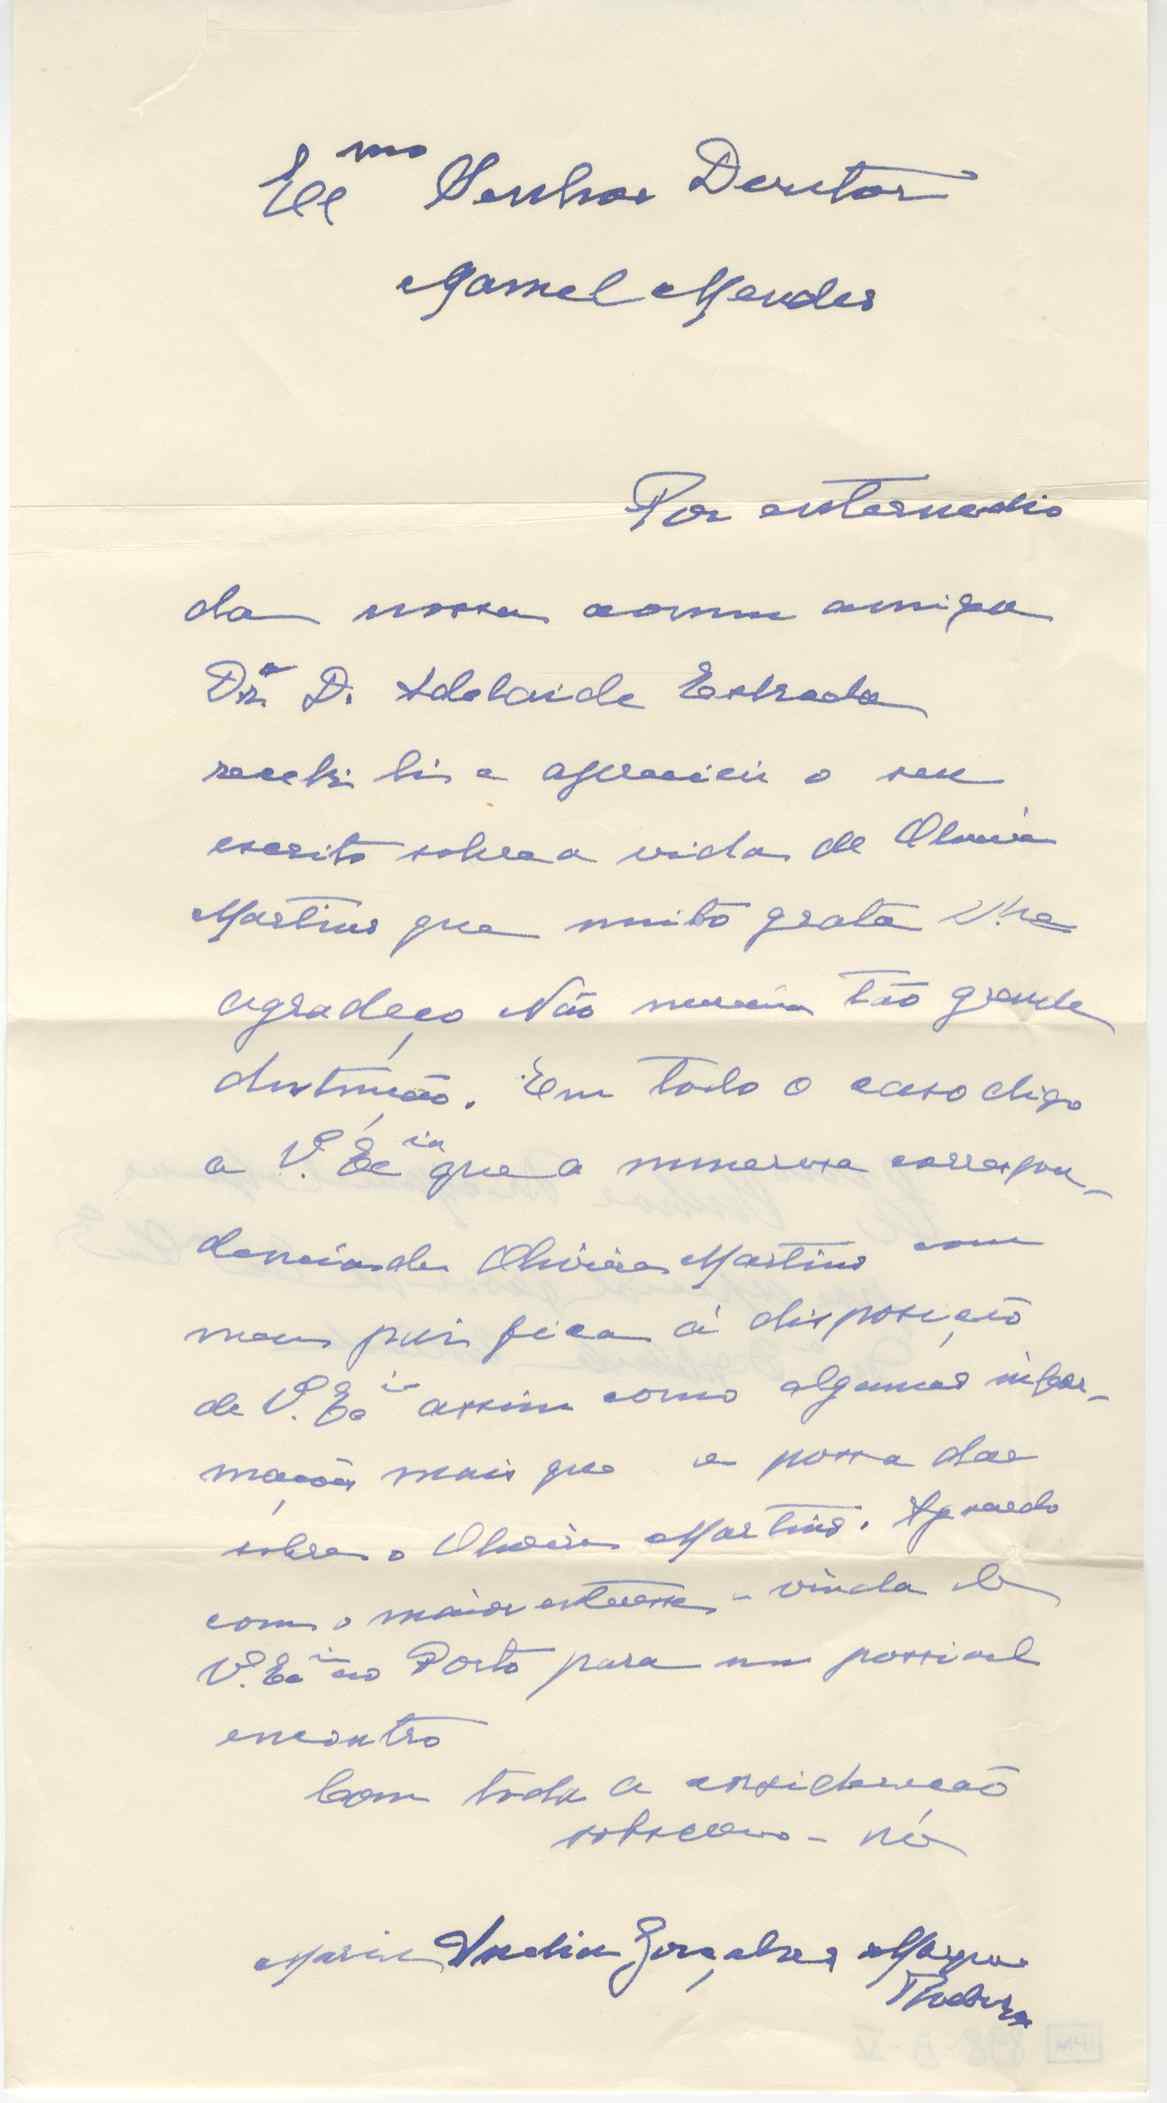 Exmo Senhor Doutor
Manuel Mendes
Por entermedio
da nossa comum amiga
Drª D. Adelaide Estrada
recebi li e apreciei o seu
escrito sobre a vida de Oliveira
Martins que muito grata lhe
agradeço Não merecia tão grande
distinção. Em todo o caso digo
a V. Ecia que a numerosa correspon-
dencia de Oliveira Martins com
meu pai fica á disposição
de V. Ecia assim como algumas infor-
mações mais que eu possa dar
sobre o Oliveira Martins. Aguardo
com o maior enteresse a vinda de
V. Ecia ao Porto para um possivel
encontro
Com toda a consideração
subscrevo-me
Maria Gonçalves